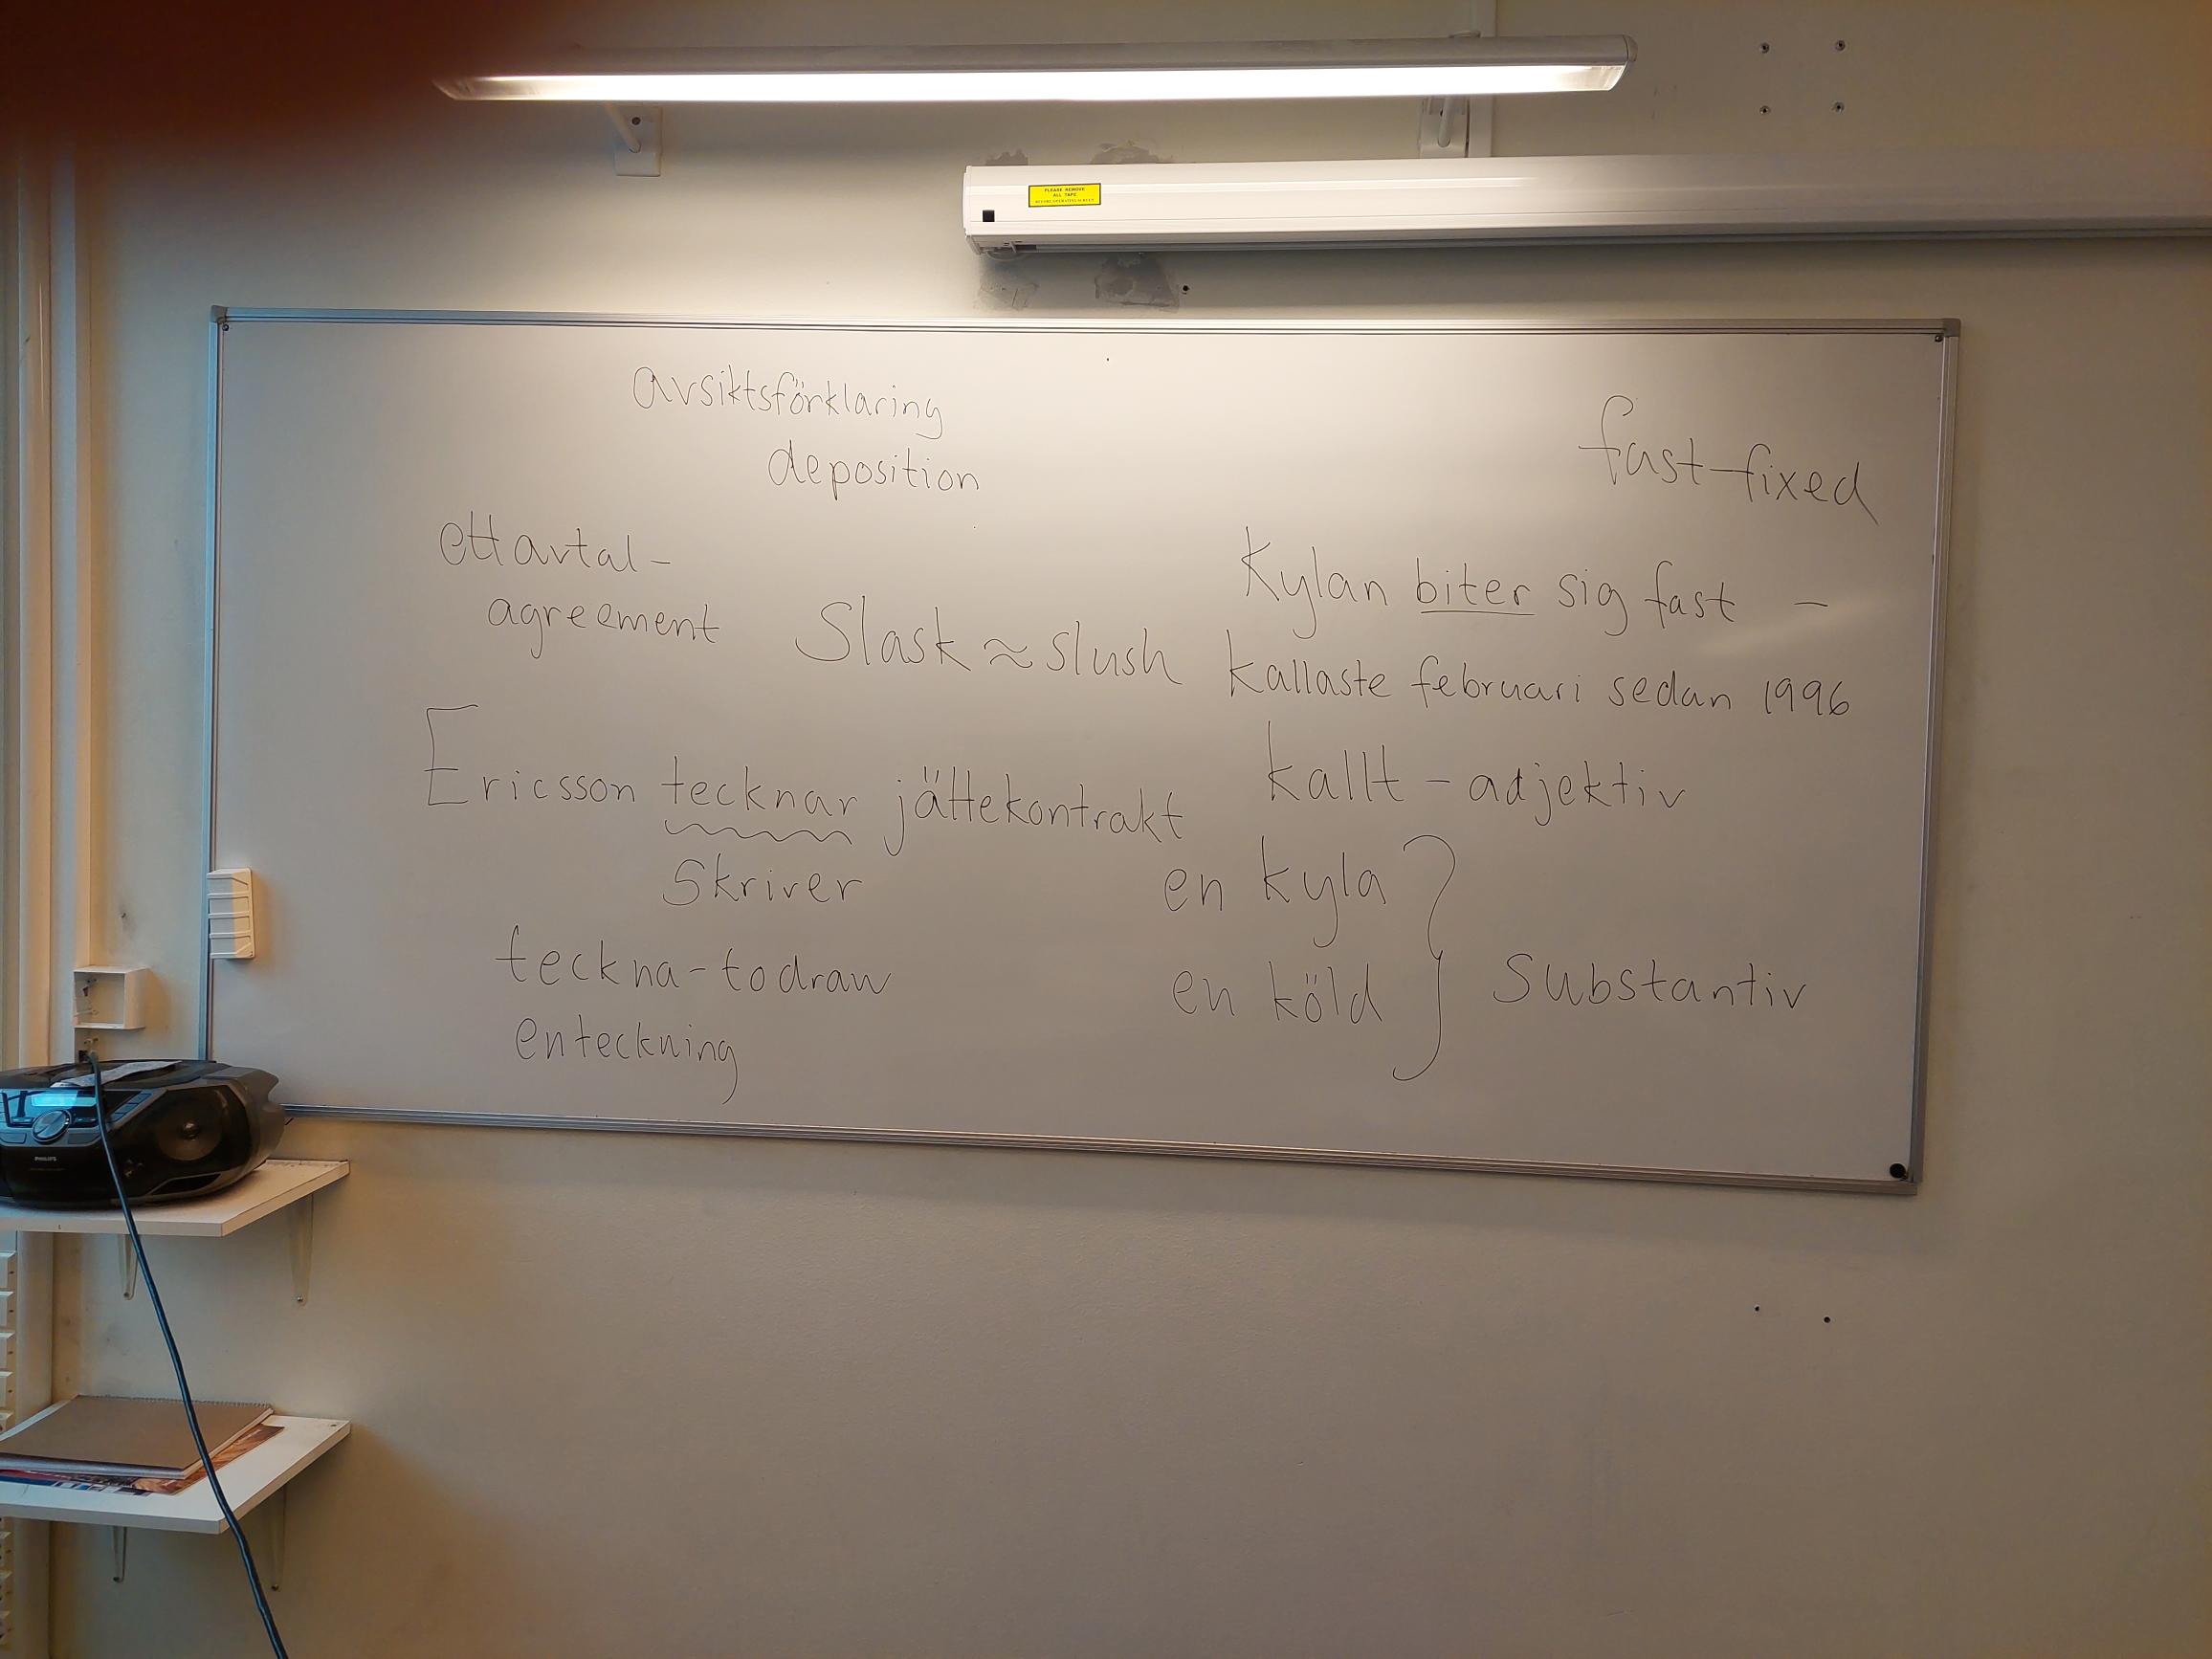 PLEASE REMOVE
ALL TAPE
avsiktsförklaring
deposition
fast-fixed
ett avtal -
agreement
Slask ≈ slush
Kylan biter sig fast -
kallaste februari sedan 1996
Ericsson tecknar jättekontrakt
skriver
teckna - to draw
en teckning
kallt - adjektiv
en kyla
en köld
} Substantiv
PHILIPS